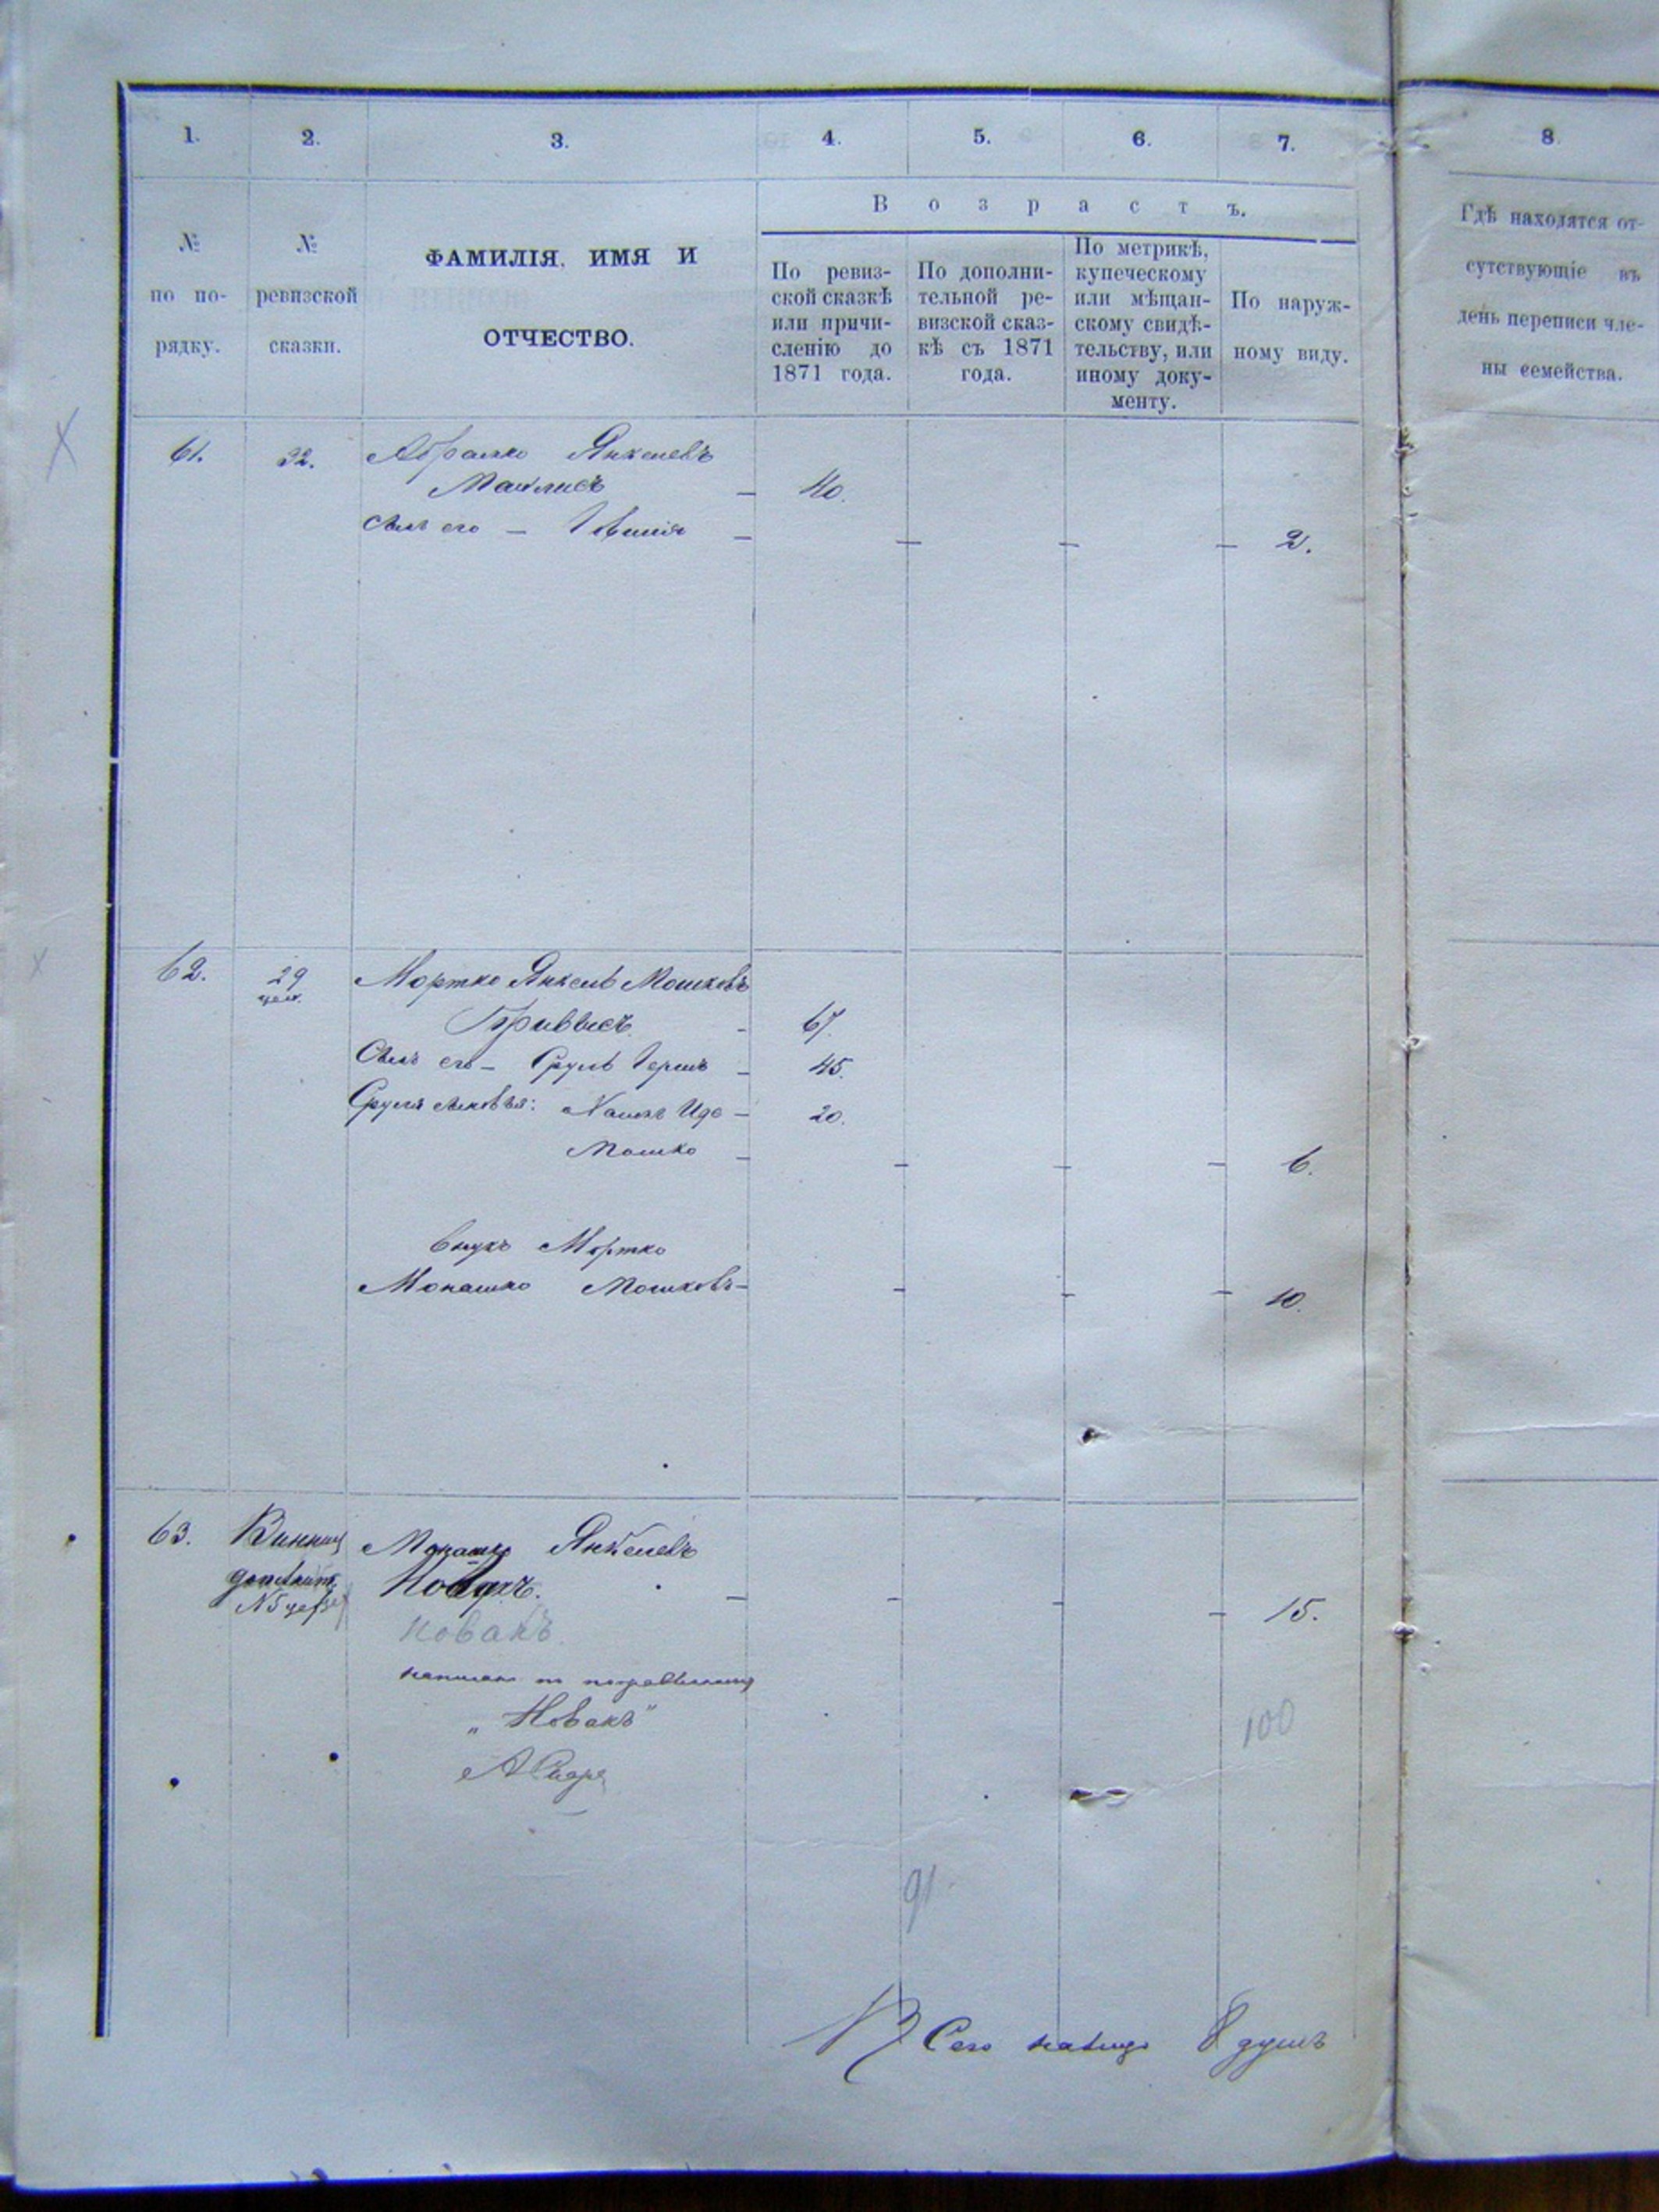 1. 2. 3. 4. 5. 6. 7. 8.
В о з р а с т ъ.
№ по по- рядку.
№ ревизской сказки.
ФАМИЛІЯ, ИМЯ И
ОТЧЕСТВО.
По ревиз-
ской сказкѣ
или причи-
сленію до
1871 года.
По дополни-
тельной ре-
визской сказ-
кѣ съ 1871
года.
По метрикѣ,
купеческому
или мѣщан-
скому свидѣ-
тельству, или
иному доку-
менту.
По наруж-
ному виду.
Гдѣ находятся от-
сутствующіе въ
день переписи чле-
ны семейства.
61. 32. Абрамко Янкелевъ
— 40.
Сынъ его — — — — — 2.
62. 29 Мортко Янкель Мошковъ
— 67.
Сынъ его — Сруль Гершъ — 45.
Сруля сыновья: — 20.
Мошко — — — — 6.
Внукъ Мортко
Монашко Мошковъ — — — — 10.
63. Монашко Янкелевъ
№ 5
Новакъ. — — — — 15.
Новакъ
"Новакъ"
100
91
Всего 8 душъ